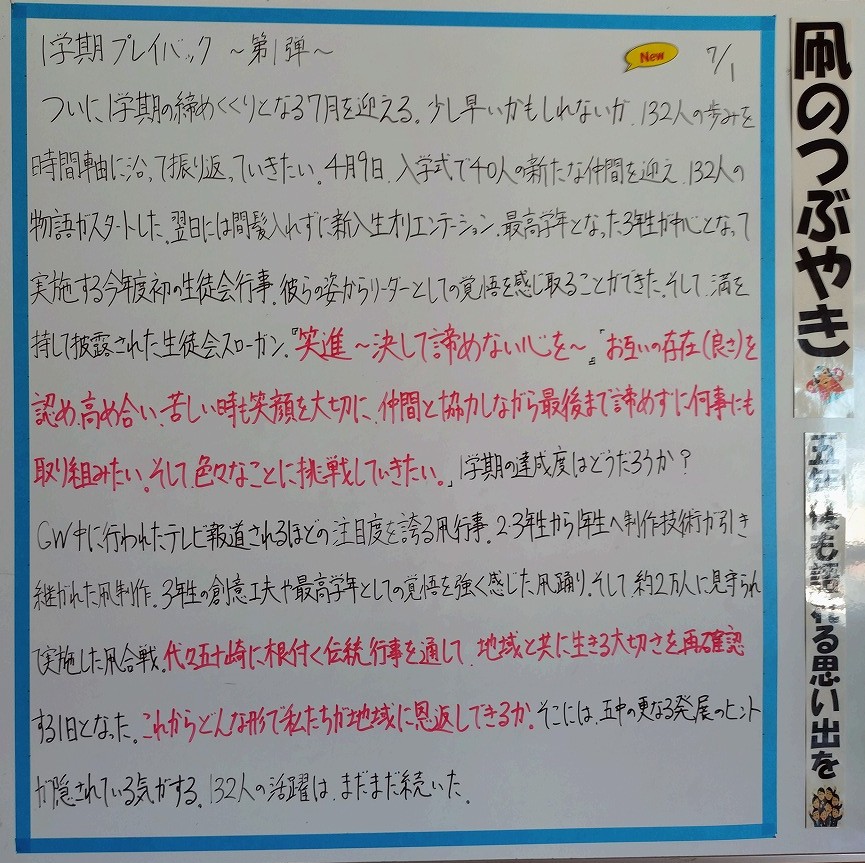 1学期プレイバック ～第1弾～
New
7/1
ついに、1学期の締めくくりとなる7月を迎える。少し早いかもしれないが、132人の歩みを
時間軸に沿って振り返っていきたい。4月9日、入学式で40人の新たな仲間を迎え、132人の
物語がスタートした。翌日には間髪入れずに新入生オリエンテーション。最高学年となった3年生が中心となって
実施する今年度初の生徒会行事。彼らの姿からリーダーとしての覚悟を感じ取ることができた。そして、満を
持して披露された生徒会スローガン。『笑進～決して諦めない心を～』「お互いの存在(良さ)を
認め、高め合い、苦しい時も笑顔を大切に、仲間と協力しながら最後まで諦めずに何事にも
取り組みたい。そして、色々なことに挑戦していきたい。」1学期の達成度はどうだろうか?
GW中に行われたテレビ報道されるほどの注目度を誇る凧行事。2・3年生から1年生へ制作技術が引き
継がれた凧制作。3年生の創意工夫や最高学年としての覚悟を強く感じた凧踊り。そして、約2万人に見守られ
て実施した凧合戦。代々五十崎に根付く伝統行事を通して、地域と共に生きる大切さを再確認
する1日となった。これからどんな形で私たちが地域に恩返しできるか。そこには、五中の更なる発展のヒント
が隠されている気がする。132人の活躍は、まだまだ続いた。
凧のつぶやき
五年後も語れる思い出を